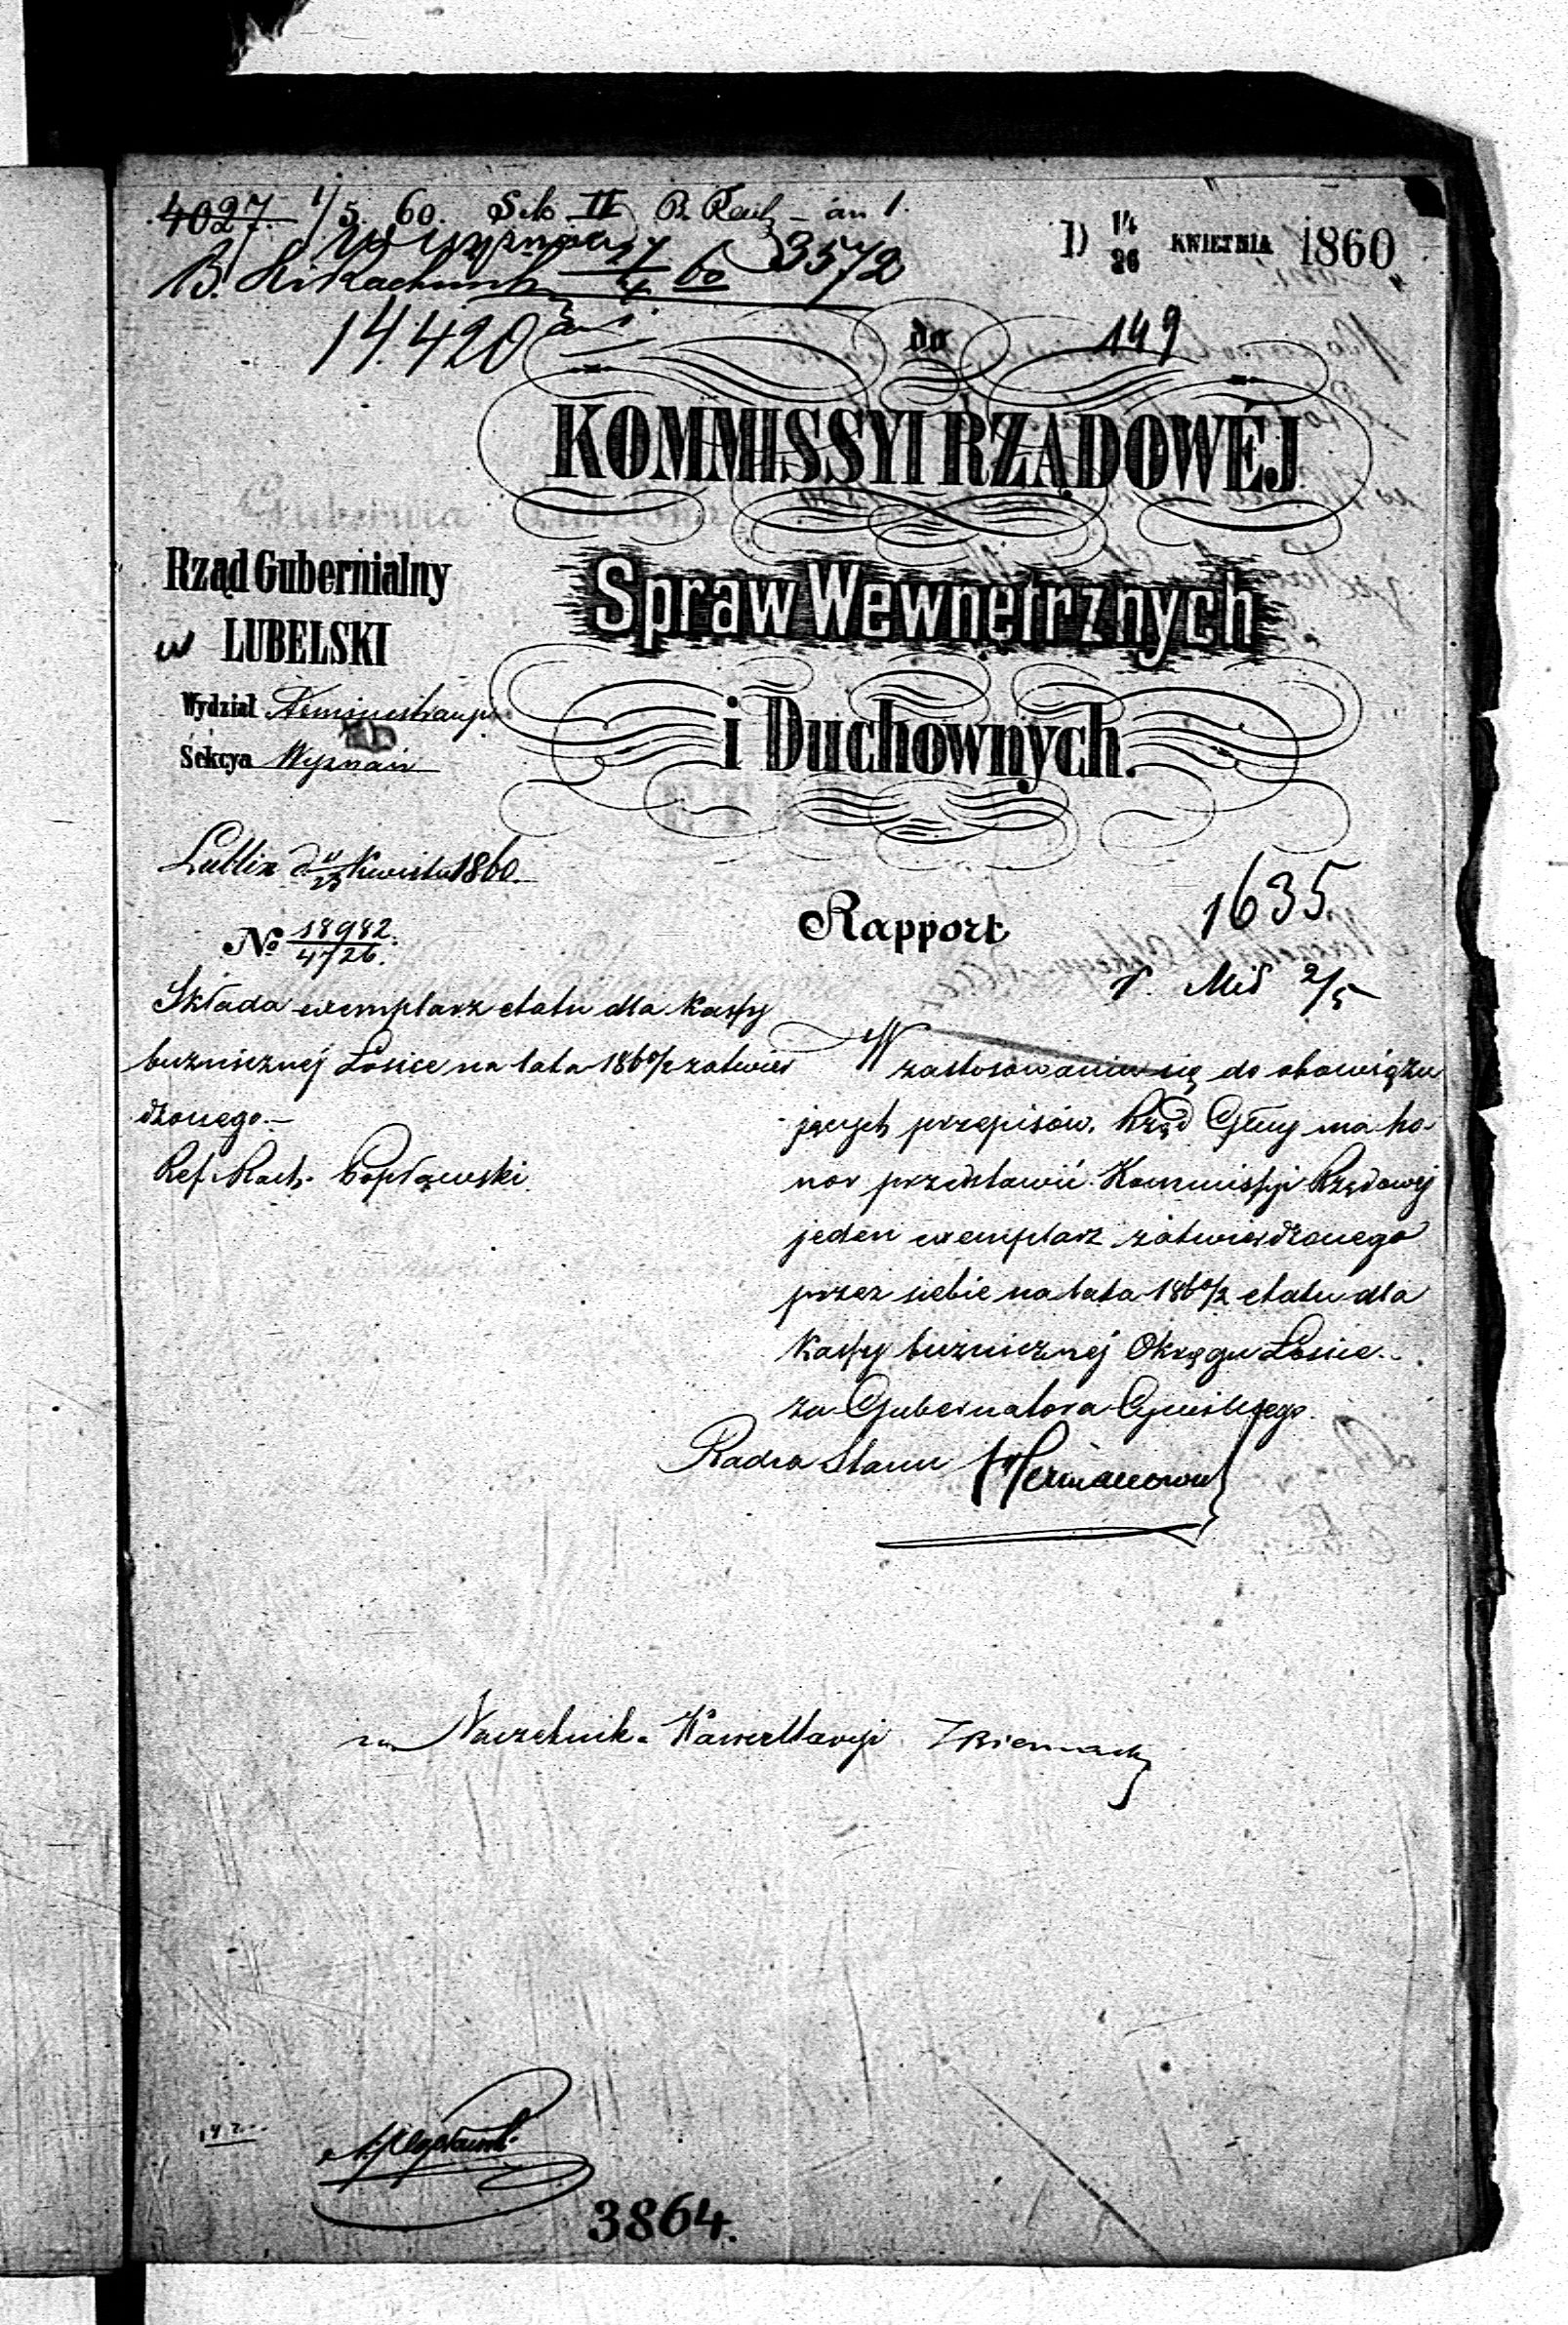 4027. 1/5. 60. Sek II B. Rach an 1.
3572
60
14.420
D 14/26 KWIETNIA 1860
do 149
KOMMISSYI RZĄDOWÉJ
Spraw Wewnętrznych
i Duchownych.
Rząd Gubernialny
w LUBELSKI
Wydział Administracyjn
Sekcya Wyznań
Lublin d 11/23 Kwietn 1860.
No 18982./4726.
Składa exemplarz etatu dla Kassy
bużnicznéj Łosice na lata 1860/2 zatwier
dzonego.—
Ref. Rach. Popławski
Rapport
1635
2/5
W zastosowaniu się do obowiązu
jących przepisów, Rząd Glny ma ho-
nor przedstawić Kommissyi Rządowéj
jeden exemplarz zatwierdzonego
przez siebie na lata 1860/2 etatu dla
Kassy bużnicznéj Okręgu Łosice.
za Gubernatora Cywilnego.
Radca Stanu
za Naczelnik Kancellaryi
3864.